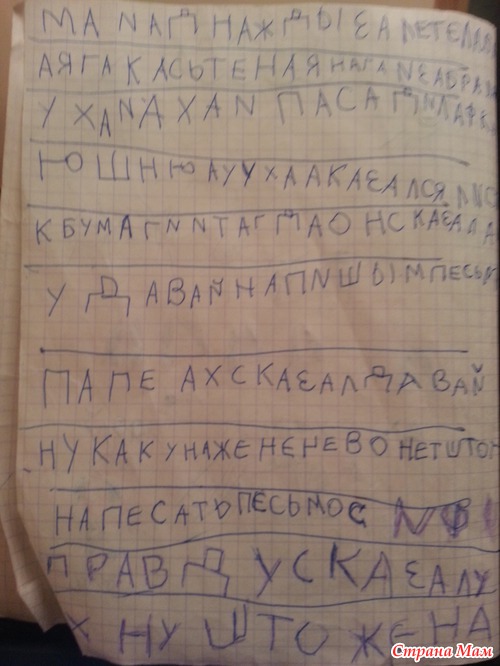 МАИАДНАЖДЫЗАЛЕТЕЛАМ
АЯГАКАСЬТЕНАЯНАГАИЗАБРАЛА
УХАИДАХАИПАСАДИЛАРК
ЮШНЮАУУХААКАЗАЛСЯЛИС
КБУМАГИИТАГДАОНСКАЗАЛА
УДАВАЙНАПИШЫМПЕСЬМ
ПАПЕАХСКАЗАЛДАВАЙ
НУКАКУНАЖЕНЕНЕВОНЕТШТОН
НАПЕСАТЬПЕСЬМОС
ПРАВДУСКАЗАЛУ
ХНУШТОЖЕНА
Страна Мам